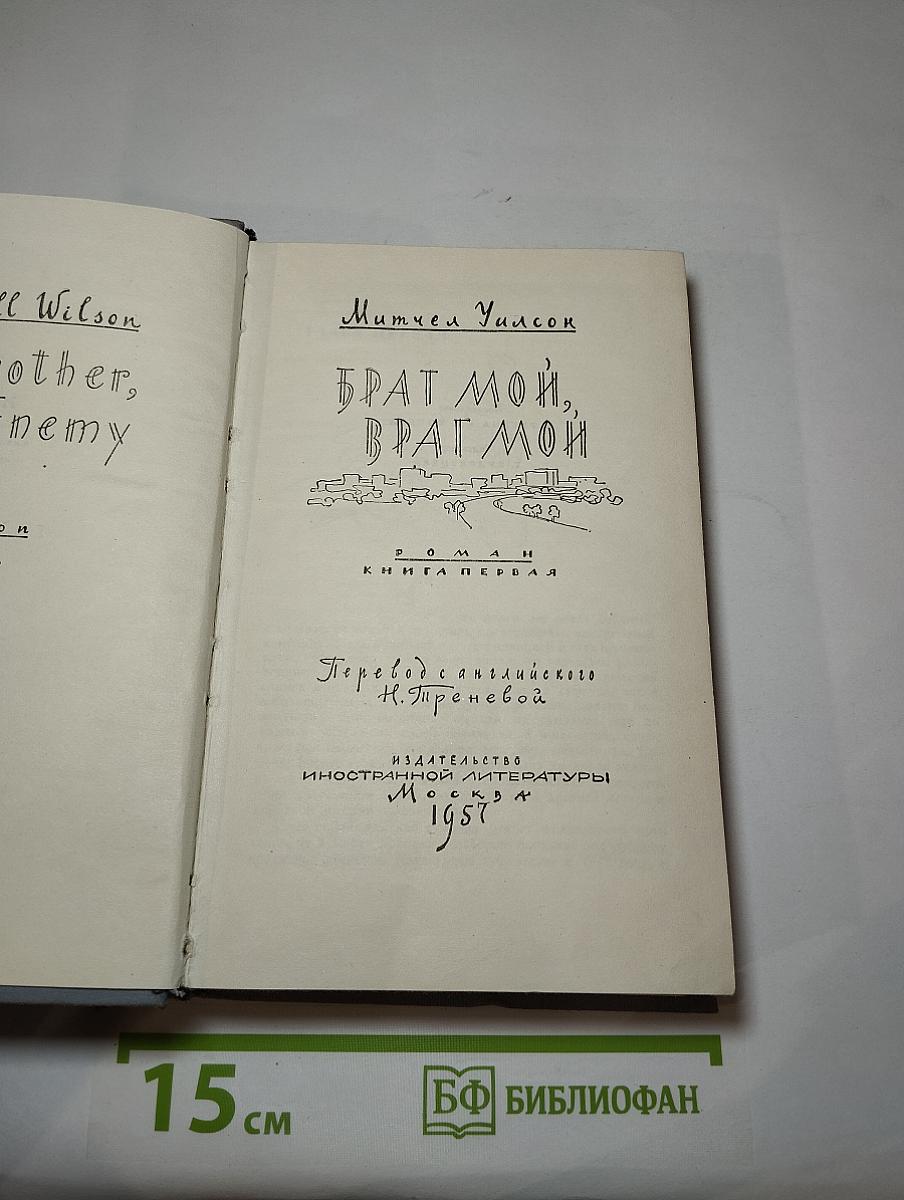 Wilson
other,
nemy
on
Митчел Уилсон
БРАТ МОЙ,
ВРАГ МОЙ
РОМАН
КНИГА ПЕРВАЯ
Перевод с английского
Н. Треневой
ИЗДАТЕЛЬСТВО
ИНОСТРАННОЙ ЛИТЕРАТУРЫ
Москва
1957
15 см
БФ БИБЛИОФАН